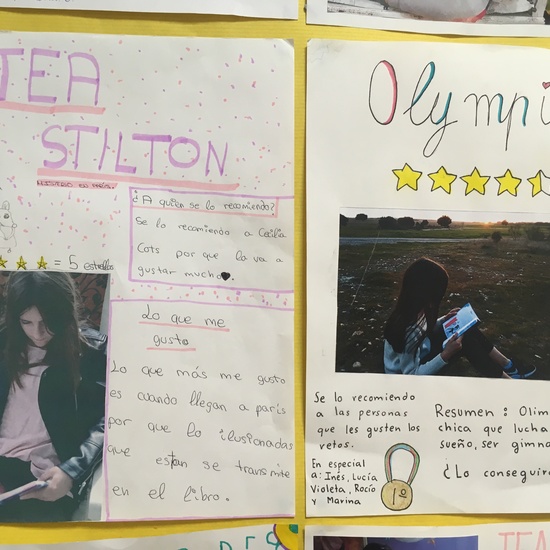 TEA
STILTON
MISTERIO EN PARÍS
¿A quien se lo recomiendo?
Se lo recomiendo a Cecilia
Cots por que la va a
gustar mucho
= 5 estrellas
Lo que me
gusto
Lo que más me gusto
es cuando llegan a paris
por que lo ilusionadas
que estan se transmite
en el libro.
Olympi
Se lo recomiendo
a las personas
que les gusten los
retos.
En especial
a: Inés, Lucía
Violeta, Rocío
y Marina
1º
Resumen: Olim
chica que lucha
sueño, ser gimna
¿Lo conseguir